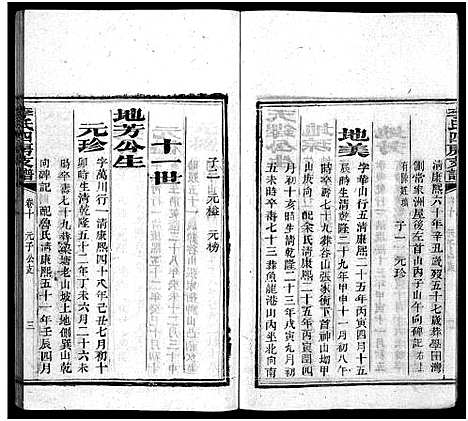 李氏四房支譜
清康熙六十年辛丑歲五十七歲葬學田灣
劉當家洲屋後左首山丙子山午向碑記
子一 元珍
地美
字 山行五清康熙二十五年丙寅四月十五
亥時生清乾隆二十九年甲申十一月初八午
時終壽七十九葬谷山張家衝下首神山坳甲
山庚向配余氏清康熙二十五年丙寅
十月 清乾隆二十三年戊寅九月初
五未時終壽七十三葬魚龍港山內坐北向南
子二 元梭 元榜
十一世
地芳公生
元珍
字萬川行一清康熙四十八年己丑七月初十
卯時生清乾隆五十二年丁未六月二十六未
時卒壽七十九葬 塘老山坡上地創巽山乾
向碑記 配魯氏清康熙五十一年壬辰四月
李氏四房支譜
卷十 元子公支
三